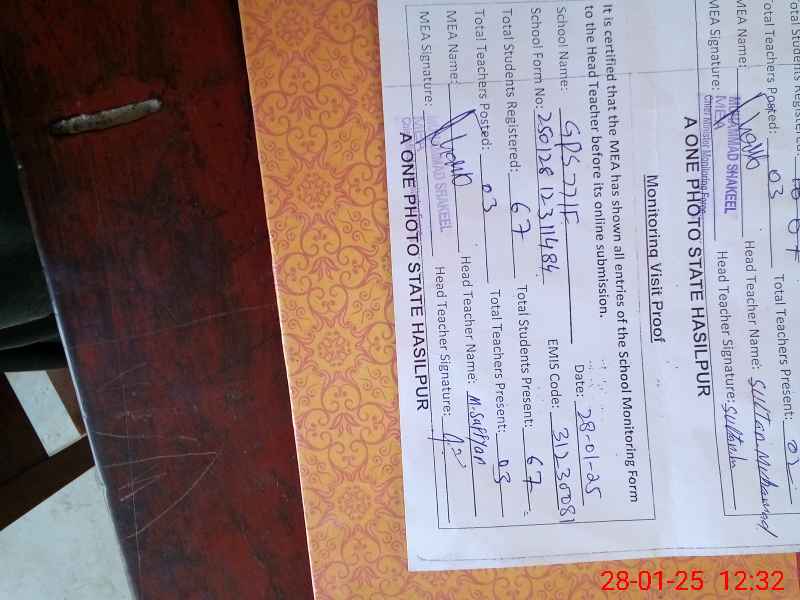 Total Students Registered:
Total Teachers Posted: 03 Total Teachers Present: 02
MEA Name: MUHAMMAD SHAKEEL Head Teacher Name: Sultan Muhammad
MEA Signature: MEA Head Teacher Signature:
A ONE PHOTO STATE HASILPUR
Monitoring Visit Proof
It is certified that the MEA has shown all entries of the School Monitoring Form
to the Head Teacher before its online submission.
Date: 28-01-25
School Name: GPS 77/F EMIS Code: 31230081
School Form No: 25012812311484
Total Students Registered: 67 Total Students Present: 67
Total Teachers Posted: 03 Total Teachers Present: 03
MEA Name: MUHAMMAD SHAKEEL Head Teacher Name: M. Suffyan
MEA Signature: MEA Head Teacher Signature:
A ONE PHOTO STATE HASILPUR
28-01-25 12:32